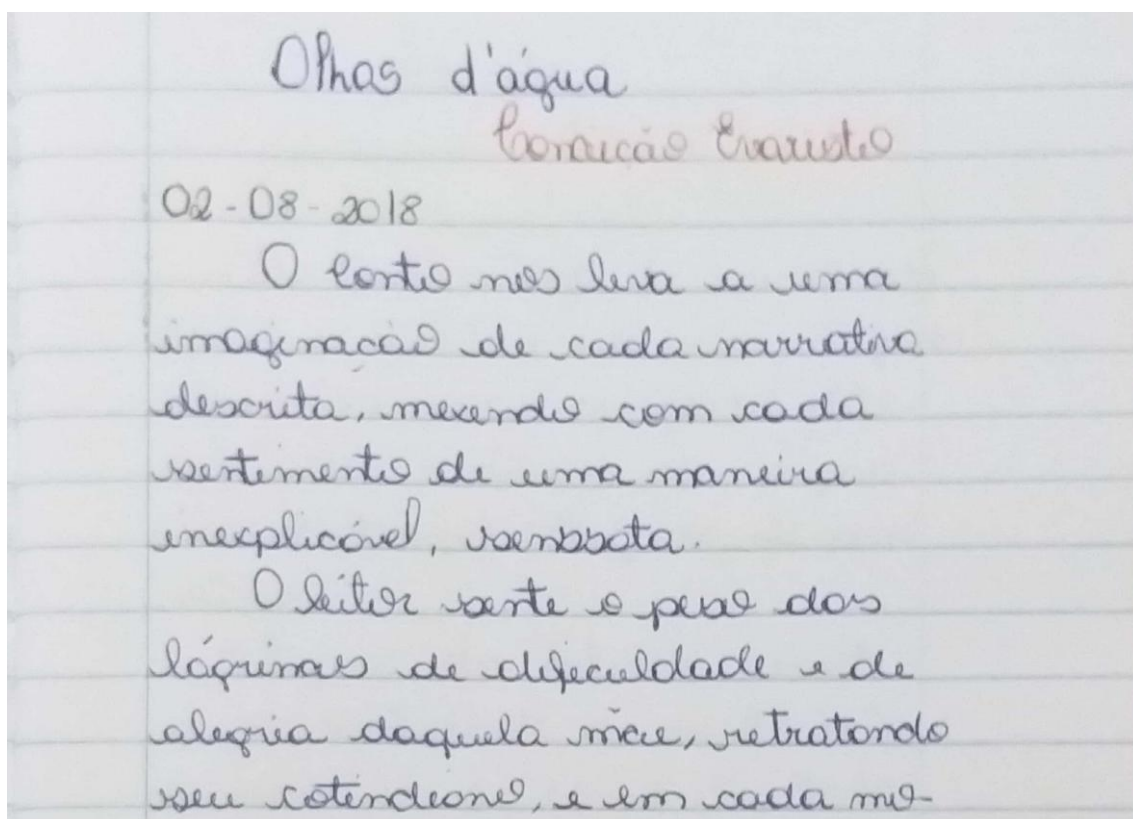 Olhos d'água
Conceição Evaristo
02-08-2018
O conto nos leva a uma
imaginacão de cada narrativa
descrita, mexendo com cada
sentimento de uma maneira
inexplicável,
O leitor sente o peso das
lágrimas de dificuldade e de
alegria daquela mãe, retratando
seu cotindiano, e em cada mo-